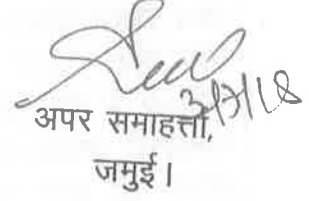 3/7/18
अपर समाहर्ता,
जमुई।